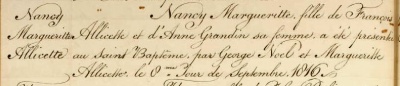 Nancy Nancy Margueritte, fille de François
Margueritte Allicette et d'Anne Grandin sa femme, a été présentée
Allicette au Saint Baptême, par George Noël et Margueritte
Allicette, le 8me Jour de Septembre, 1816.